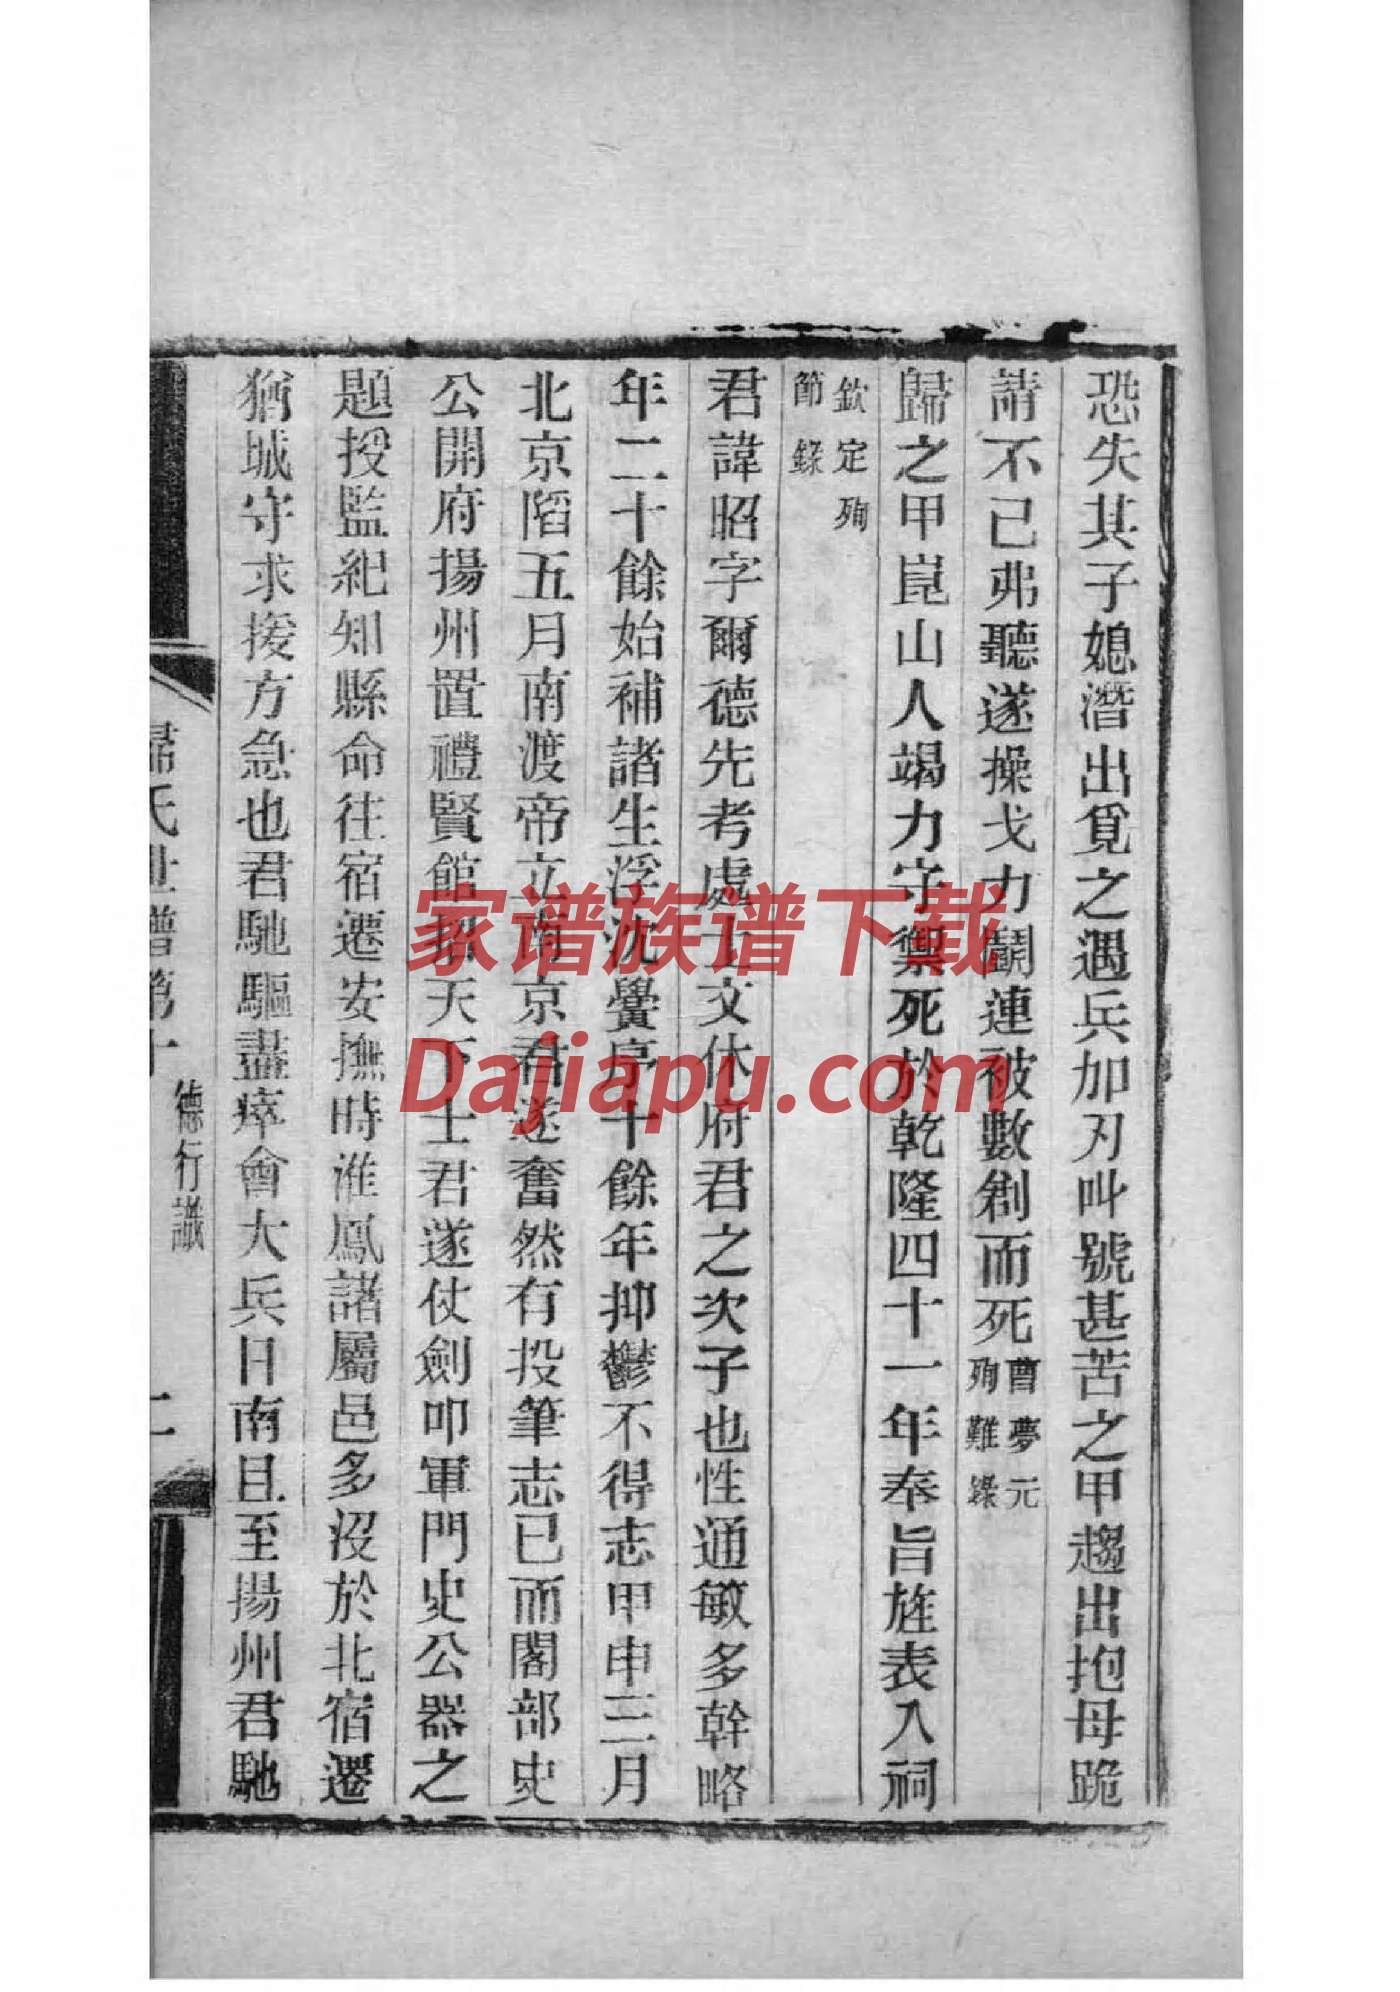 恐失其子媳潛出覓之遇兵加刃叫號甚苦之甲趨出抱母跪
請不已弗聽遂操戈力鬭連被數創而死曹夢元
殉難錄
歸之甲崑山人竭力守禦死於乾隆四十一年奉旨旌表入祠
欽定殉
節錄
君諱昭字爾德先考處士文休府君之次子也性通敏多幹略
年二十餘始補諸生浮沈黌序十餘年抑鬱不得志甲申三月
北京陷五月南渡帝立南京君遂奮然有投筆志已而閣部史
公開府揚州置禮賢館招天下士君遂仗劍叩軍門史公器之
題授監紀知縣命往宿遷安撫時淮鳳諸屬邑多沒於北宿遷
猶城守求援方急也君馳驅盡瘁會大兵日南且至揚州君馳
歸氏世譜第十 德行識 二
家谱族谱下载
Dajiapu.com